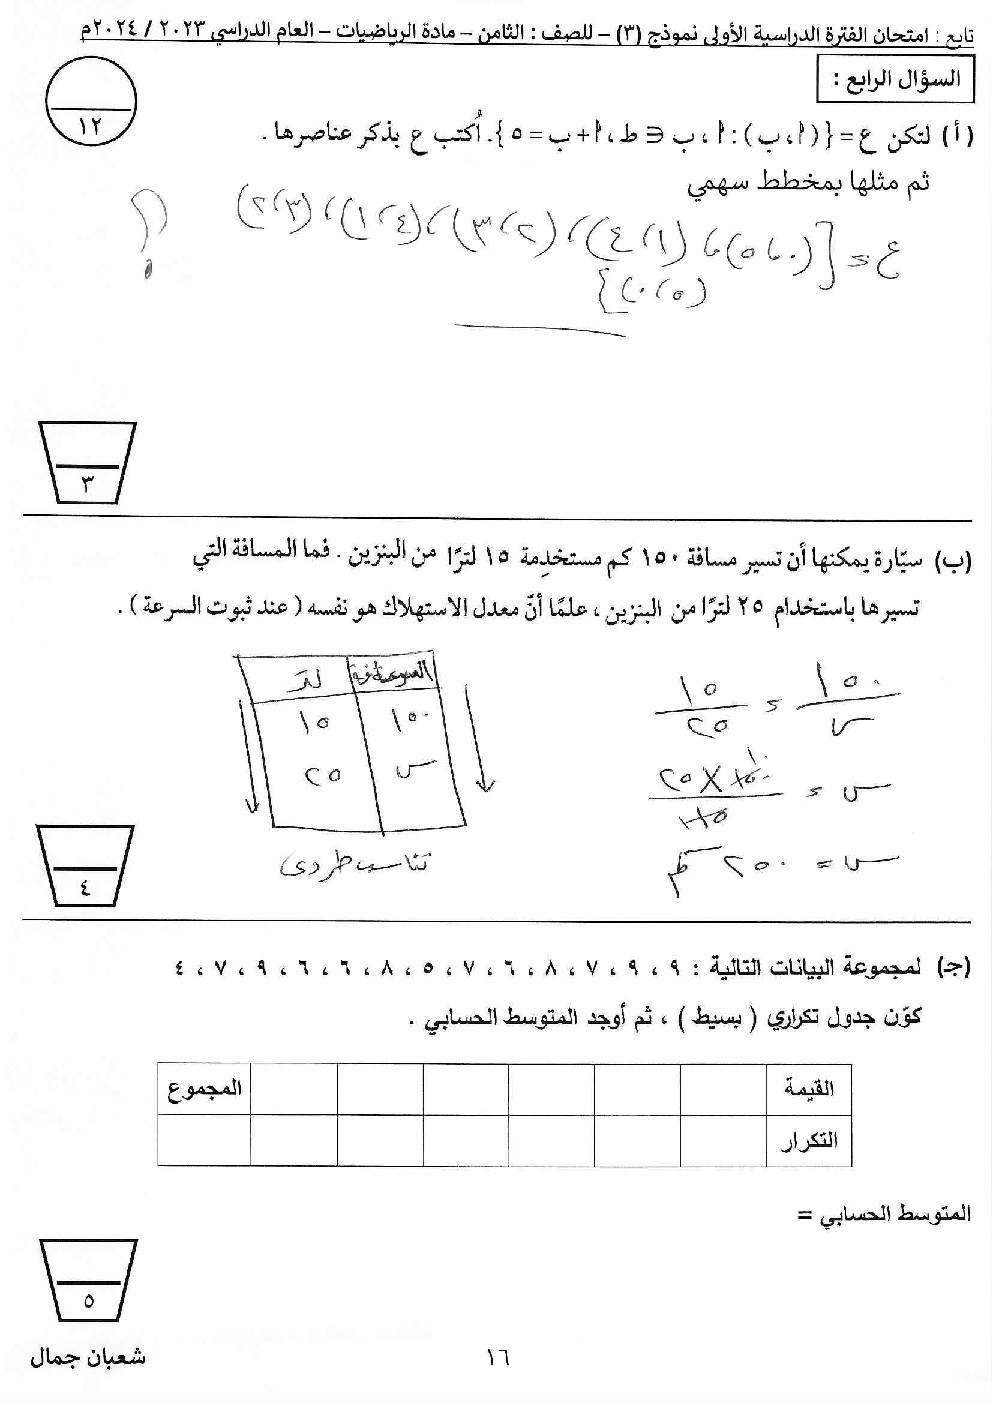 تابع : امتحان الفترة الدراسية الأولى نموذج (٣) – للصف : الثامن – مادة الرياضيات – العام الدراسي ٢٠٢٣ / ٢٠٢٤م
السؤال الرابع :
١٢
(أ) لتكن ع = {(أ ، ب) : أ ، ب ∈ ط ، أ + ب = ٥} . أُكتب ع بذكر عناصرها .
ثم مثلها بمخطط سهمي
ع = {(٠،٥)،(١،٤)،(٢،٣)،(٤،١)،(٣،٢)
(٥،٠)}
؟
٣
(ب) سيّارة يمكنها أن تسير مسافة ١٥٠ كم مستخدِمة ١٥ لترًا من البنزين . فما المسافة التي
تسيرها باستخدام ٢٥ لترًا من البنزين ، علمًا أنّ معدل الاستهلاك هو نفسه ( عند ثبوت السرعة ) .
لتر
١٥٠ ١٥
س ٢٥
تناسب طردي
١٥٠ / س = ١٥ / ٢٥
س = ١٥٠ × ٢٥ / ١٥
١٠
س = ٢٥٠ كم
٤
(جـ) لمجموعة البيانات التالية : ٩ ، ٩ ، ٧ ، ٨ ، ٦ ، ٧ ، ٥ ، ٨ ، ٦ ، ٦ ، ٩ ، ٧ ، ٤
كوّن جدول تكراري ( بسيط ) ، ثم أوجد المتوسط الحسابي .
القيمة المجموع
التكرار
المتوسط الحسابي =
٥
١٦
شعبان جمال